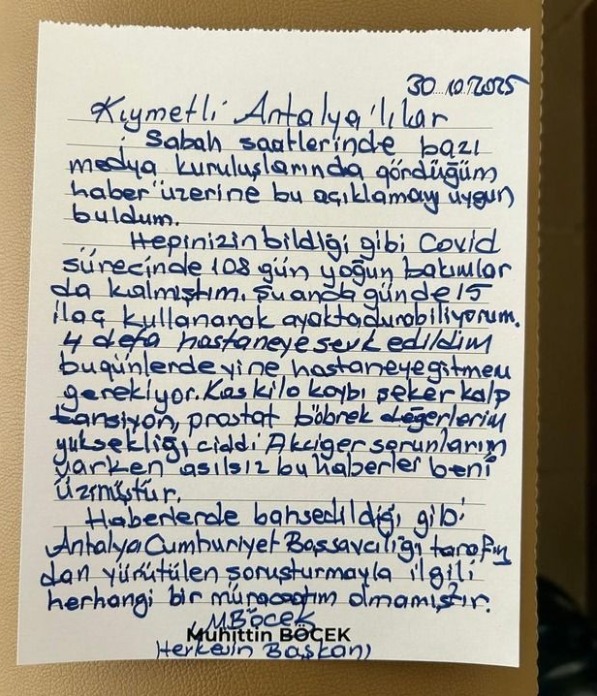 30.10.2025
Kıymetli Antalya'lılar
Sabah saatlerinde bazı
medya kuruluşlarında gördüğüm
haber üzerine bu açıklamayı uygun
buldum.
Hepinizin bildiği gibi Covid
sürecinde 108 gün yoğun bakımlar
da kalmıştım. Şu anda günde 15
ilaç kullanarak ayakta durabiliyorum.
4 defa hastaneye sevk edildim
bugünlerde yine hastaneye gitmem
gerekiyor. Kas kilo kaybı şeker kalp
tansiyon, prostat böbrek değerlerim
yüksekliği ciddi Akciğer sorunlarım
varken asılsız bu haberler beni
üzmüştür.
Haberlerde bahsedildiği gibi
Antalya Cumhuriyet Başsavcılığı tarafın
dan yürütülen soruşturmayla ilgili
herhangi bir müracatım olmamıştır.
MBÖCEK
Muhittin BÖCEK
Herkesin Başkanı